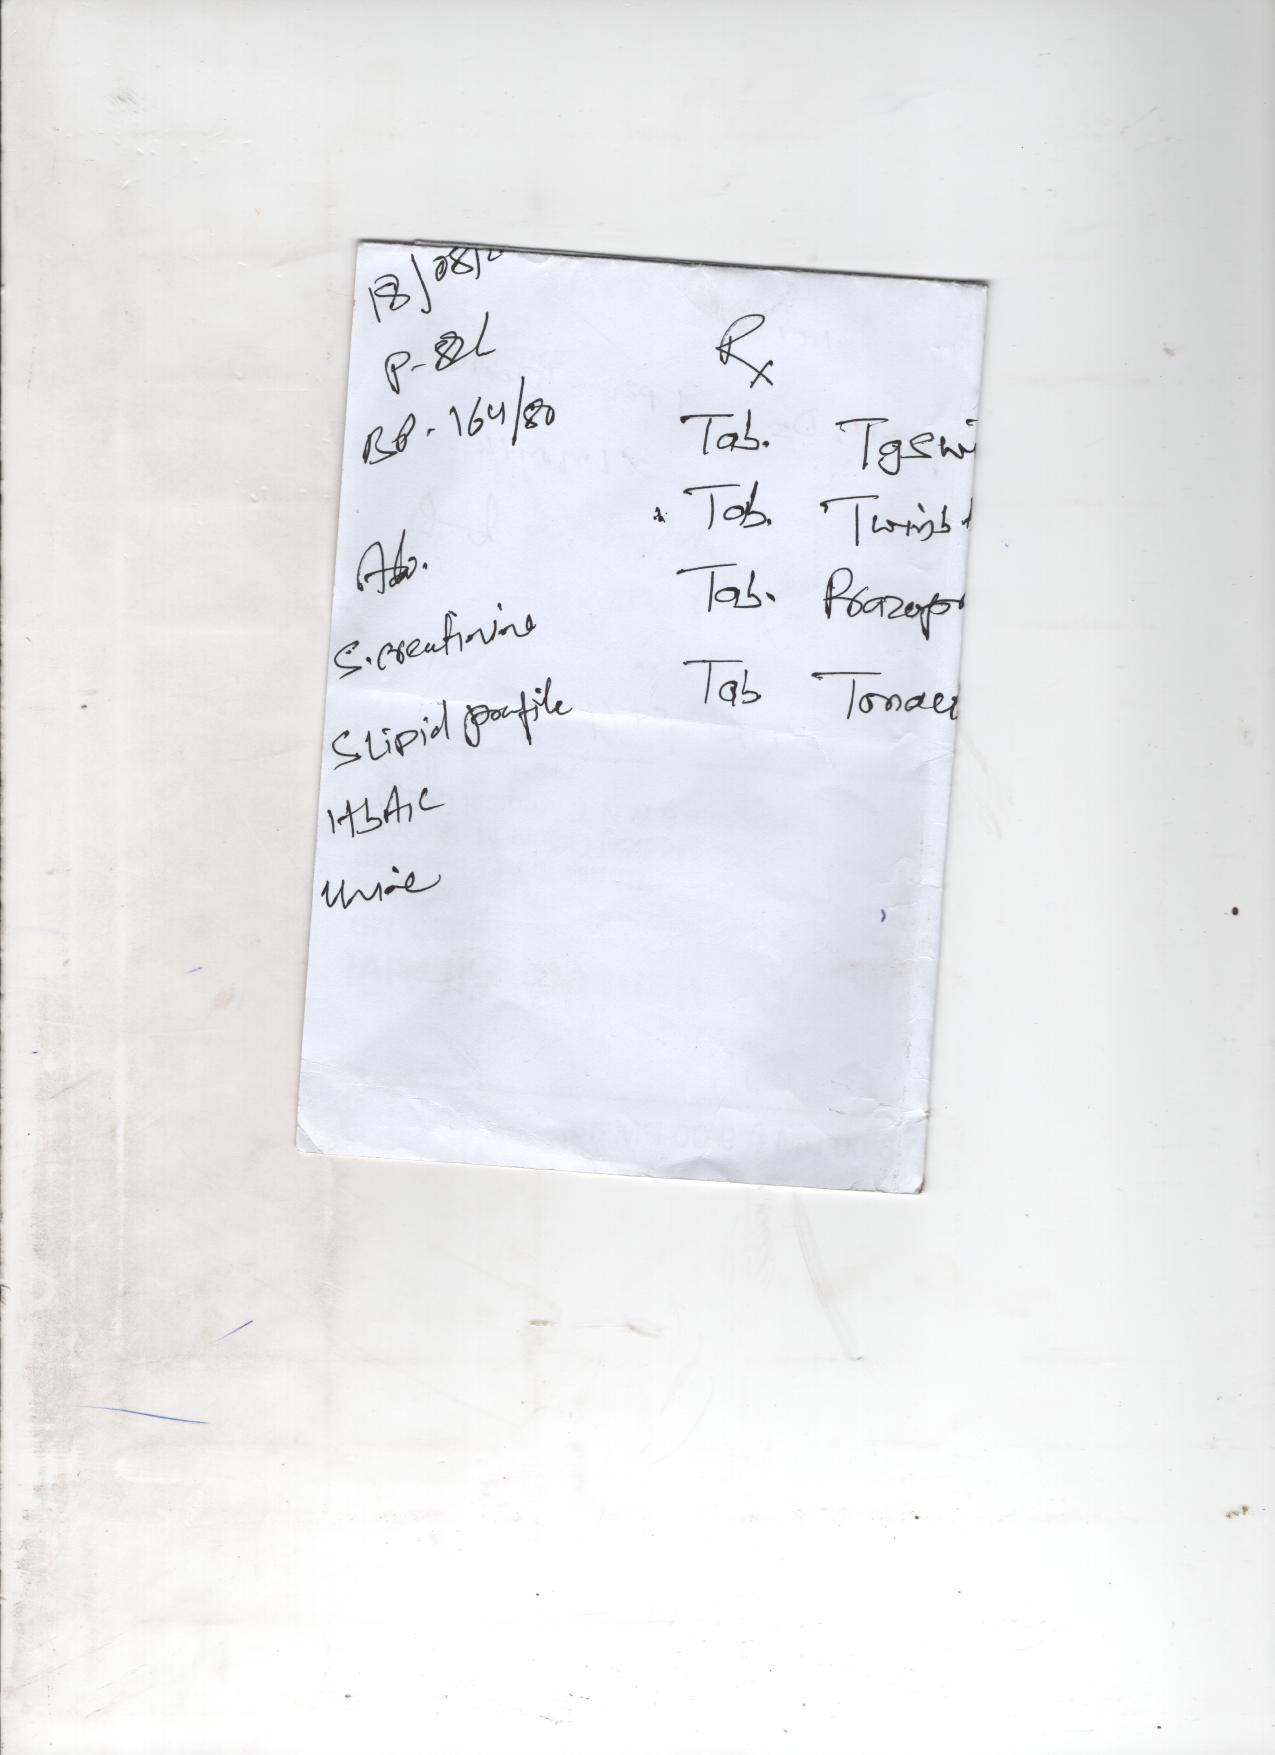 18/08/2
P-82
BP-164/80
Adv.
S.creatinine
S Lipid profile
HbA1C
Urine
Rx
Tab. Tgswi
Tab. Twinb
Tab. Prazopr
Tab Tonac